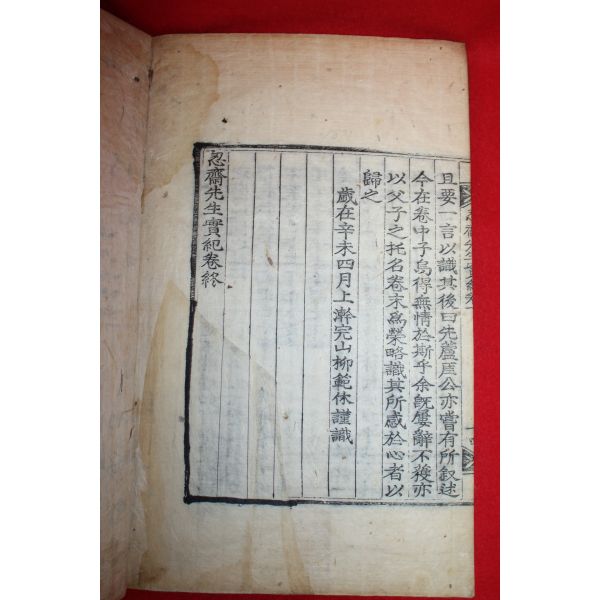 且要一言以識其後曰先蘆厓公亦嘗有所叙述
今在卷中子烏得無情於斯乎余旣屢辭不獲亦
以父子之托名卷末爲榮略識其所感於心者以
歸之
歲在辛未四月上澣完山柳範休謹識
忍齋先生實紀卷終